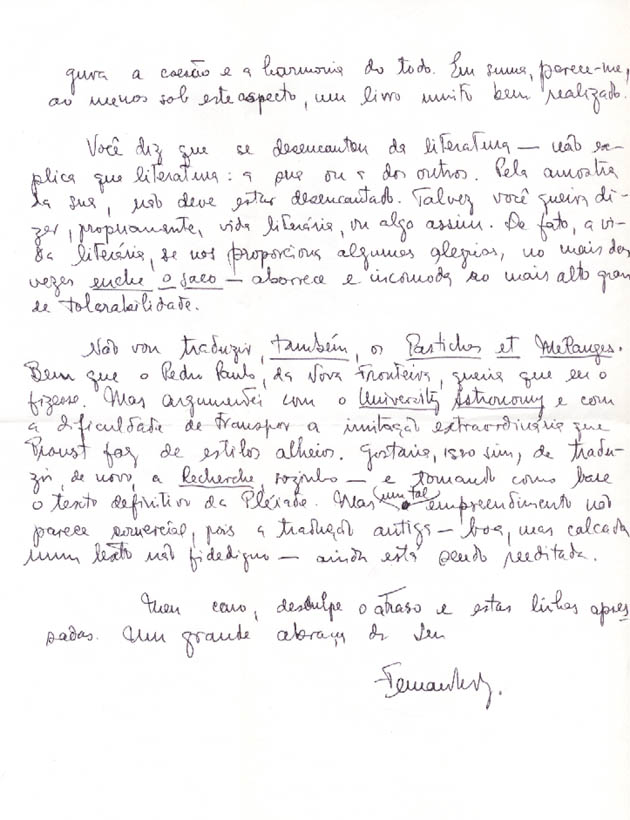 gura a coesão e a harmonia do todo. Em suma, parece-me,
ao menos sob este aspecto, um livro muito bem realizado.
Você diz que se desencantou da literatura — não ex-
plica que literatura: a sua ou a dos outros. Pela amostra
da sua, não deve estar desencantado. Talvez você queira di-
zer, propriamente, vida literária, ou algo assim. De fato, a vi-
da literária, se nos proporciona algumas alegrias, no mais das
vezes enche o saco — aborrece e incomoda ao mais alto grau
de tolerabilidade.
Não vou traduzir, também, os Pastiches et Mélanges.
Bem que o Pedro Paulo, da Nova Fronteira, queria que eu o
fizesse. Mas argumentei com o University Astronomy e com
a dificuldade de transpor a imitação extraordinária que
Proust faz de estilos alheios. Gostaria, isso sim, de tradu-
zir, de novo, a Recherche, sozinho — e tomando como base
o texto definitivo da Pléiade. Mas um tal empreendimento não
parece comercial, pois a tradução antiga — boa, mas calcada
num texto não fidedigno — ainda está sendo reeditada.
Meu caro, desculpe o atraso e estas linhas apres
sadas. Um grande abraço do seu